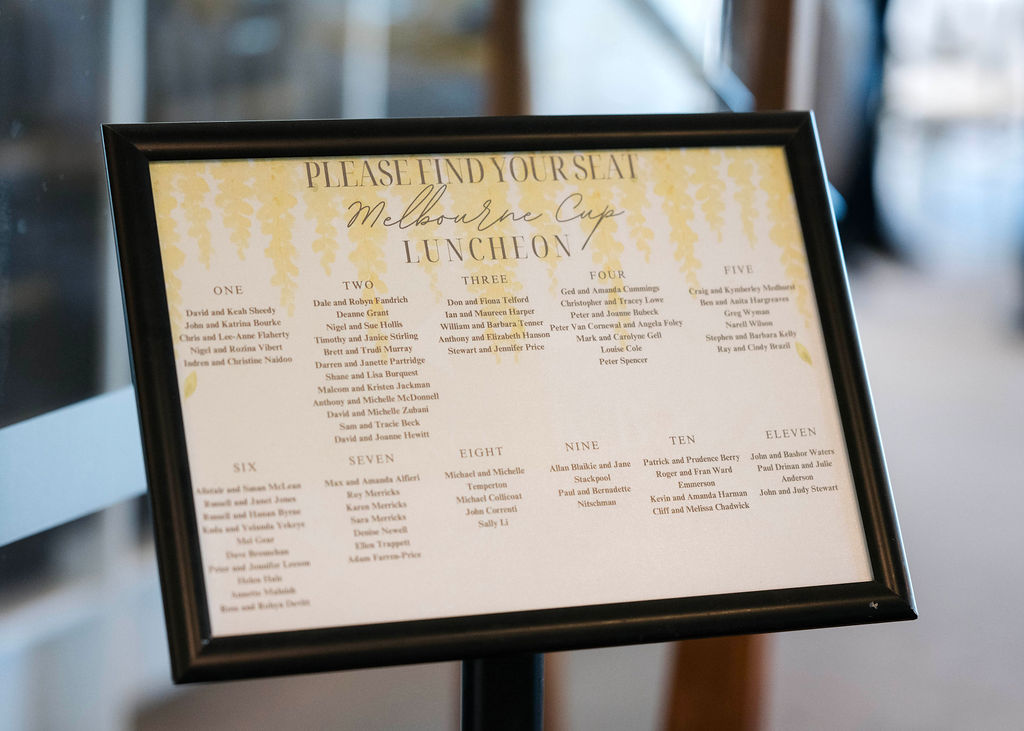 PLEASE FIND YOUR SEAT
Melbourne Cup
LUNCHEON
ONE
David and Keah Sheedy
John and Katrina Bourke
Chris and Lee-Anne Flaherty
Nigel and Rozina Vibert
Indren and Christine Naidoo
TWO
Dale and Robyn Fandrich
Deanne Grant
Nigel and Sue Hollis
Timothy and Janice Stirling
Brett and Trudi Murray
Darren and Janette Partridge
Shane and Lisa Burquest
Malcom and Kristen Jackman
Anthony and Michelle McDonnell
David and Michelle Zubani
Sam and Tracie Beck
David and Joanne Hewitt
THREE
Don and Fiona Telford
Ian and Maureen Harper
William and Barbara Tenner
Anthony and Elizabeth Hanson
Stewart and Jennifer Price
FOUR
Ged and Amanda Cummings
Christopher and Tracey Lowe
Peter and Joanne Bubeck
Peter Van Cornewal and Angela Foley
Mark and Carolyne Gell
Louise Cole
Peter Spencer
FIVE
Craig and Kymberley Medhurst
Ben and Anita Hargreaves
Greg Wyman
Narell Wilson
Stephen and Barbara Kelly
Ray and Cindy Brazil
SIX
Alistair and Susan McLean
Russell and Janet Jones
Russell and Hanan Byrne
and Yolanda
Mal
Dave Bresnehan
Peter and Jennifer Leeson
Helen
Annette
Ross and Robyn Devitt
SEVEN
Max and Amanda Alfieri
Roy Merricks
Karen Merricks
Sara Merricks
Denise Newell
Ellen Trappett
Adam Farren-Price
EIGHT
Michael and Michelle
Temperton
Michael Collicoat
John Correnti
Sally Li
NINE
Allan Blaikie and Jane
Stackpool
Paul and Bernadette
Nitschman
TEN
Patrick and Prudence Berry
Roger and Fran Ward
Emmerson
Kevin and Amanda Harman
Cliff and Melissa Chadwick
ELEVEN
John and Bashor Waters
Paul Drinan and Julie
Anderson
John and Judy Stewart